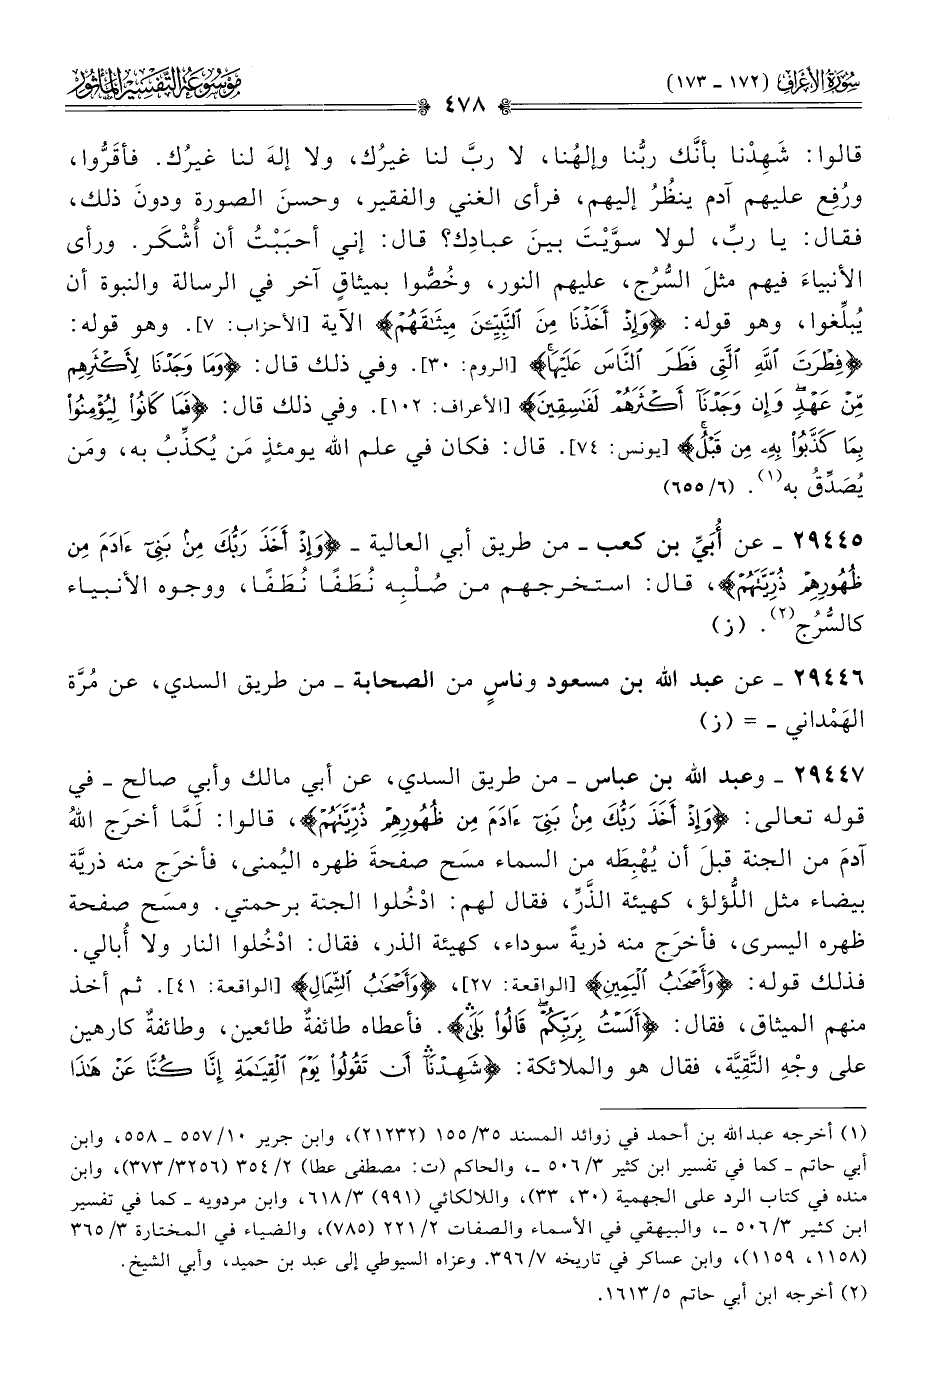 سورة الأعراف (١٧٢ - ١٧٣)
موسوعة التفسير المأثور
٤٧٨
قالوا: شَهِدْنا بأنَّك ربُّنا وإلهُنا، لا ربَّ لنا غيرُك، ولا إلهَ لنا غيرُك. فأقَرُّوا،
ورُفِع عليهم آدم ينظُرُ إليهم، فرأى الغني والفقير، وحسنَ الصورة ودونَ ذلك،
فقال: يا ربِّ، لولا سوَّيْتَ بينَ عبادِك؟ قال: إني أحبَبْتُ أن أُشْكَر. ورأى
الأنبياءَ فيهم مثلَ السُّرُج، عليهم النور، وخُصُّوا بميثاقٍ آخر في الرسالة والنبوة أن
يُبلِّغوا، وهو قوله: ﴿وَإِذْ أَخَذْنَا مِنَ ٱلنَّبِيِّـۧنَ مِيثَٰقَهُمْ﴾ الآية [الأحزاب: ٧]. وهو قوله:
﴿فِطْرَتَ ٱللَّهِ ٱلَّتِى فَطَرَ ٱلنَّاسَ عَلَيْهَا﴾ [الروم: ٣٠]. وفي ذلك قال: ﴿وَمَا وَجَدْنَا لِأَكْثَرِهِم
مِّنْ عَهْدٍ وَإِن وَجَدْنَآ أَكْثَرَهُمْ لَفَٰسِقِينَ﴾ [الأعراف: ١٠٢]. وفي ذلك قال: ﴿فَمَا كَانُوا۟ لِيُؤْمِنُوا۟
بِمَا كَذَّبُوا۟ بِهِۦ مِن قَبْلُ﴾ [يونس: ٧٤]. قال: فكان في علم الله يومئذٍ مَن يُكذِّبُ به، ومَن
يُصَدِّقُ به(١). (٦/٦٥٥)
٢٩٤٤٥ - عن أُبَيِّ بن كعب - من طريق أبي العالية - ﴿وَإِذْ أَخَذَ رَبُّكَ مِنۢ بَنِىٓ ءَادَمَ مِن
ظُهُورِهِمْ ذُرِّيَّتَهُمْ﴾، قال: استخرجهم من صُلْبِه نُطَفًا نُطَفًا، ووجوه الأنبياء
كالسُّرُج(٢). (ز)
٢٩٤٤٦ - عن عبد الله بن مسعود وناسٍ من الصحابة - من طريق السدي، عن مُرَّة
الهَمْداني - = (ز)
٢٩٤٤٧ - وعبد الله بن عباس - من طريق السدي، عن أبي مالك وأبي صالح - في
قوله تعالى: ﴿وَإِذْ أَخَذَ رَبُّكَ مِنۢ بَنِىٓ ءَادَمَ مِن ظُهُورِهِمْ ذُرِّيَّتَهُمْ﴾، قالوا: لَمَّا أخرَج اللهُ
آدمَ من الجنة قبلَ أن يُهْبِطَه من السماء مسَح صفحةَ ظهره اليُمنى، فأخرَج منه ذريةً
بيضاء مثل اللُّؤلؤ، كهيئة الذَّرِّ، فقال لهم: ادْخُلوا الجنة برحمتي. ومسَح صفحة
ظهره اليسرى، فأخرَج منه ذريةً سوداء، كهيئة الذر، فقال: ادْخُلوا النار ولا أُبالي.
فذلك قوله: ﴿وَأَصْحَٰبُ ٱلْيَمِينِ﴾ [الواقعة: ٢٧]، ﴿وَأَصْحَٰبُ ٱلشِّمَالِ﴾ [الواقعة: ٤١]. ثم أخذ
منهم الميثاق، فقال: ﴿أَلَسْتُ بِرَبِّكُمْ قَالُوا۟ بَلَىٰ﴾. فأعطاه طائفةٌ طائعين، وطائفةٌ كارهين
على وجْهِ التَّقِيَّة، فقال هو والملائكة: ﴿شَهِدْنَآ أَن تَقُولُوا۟ يَوْمَ ٱلْقِيَٰمَةِ إِنَّا كُنَّا عَنْ هَٰذَا
(١) أخرجه عبدالله بن أحمد في زوائد المسند ٣٥/ ١٥٥ (٢١٢٣٢)، وابن جرير ١٠/ ٥٥٧ - ٥٥٨، وابن
أبي حاتم - كما في تفسير ابن كثير ٣/ ٥٠٦ -، والحاكم (ت: مصطفى عطا) ٢/ ٣٥٤ (٣٢٥٦/ ٣٧٣)، وابن
منده في كتاب الرد على الجهمية (٣٠، ٣٣)، واللالكائي (٩٩١) ٣/ ٦١٨، وابن مردويه - كما في تفسير
ابن كثير ٣/ ٥٠٦ -، والبيهقي في الأسماء والصفات ٢/ ٢٢١ (٧٨٥)، والضياء في المختارة ٣/ ٣٦٥
(١١٥٨، ١١٥٩)، وابن عساكر في تاريخه ٧/ ٣٩٦. وعزاه السيوطي إلى عبد بن حميد، وأبي الشيخ.
(٢) أخرجه ابن أبي حاتم ٥/ ١٦١٣.